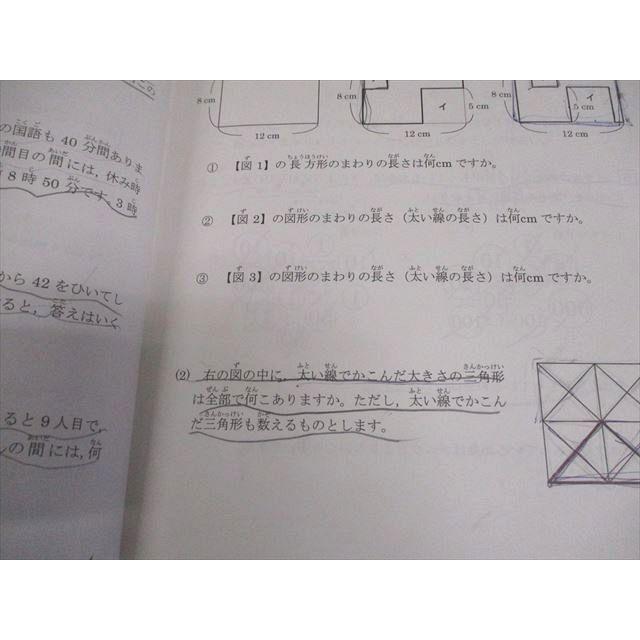 の国語も 40 分間ありま
間目の間には，休み時
8 時 50 分です。3 時
から 42 をひいてし
ると，答えはいく
ると 9 人目で
の間には，何
8 cm
12 cm
8 cm
イ
5 cm
12 cm
8 cm
イ
5 cm
12 cm
① 【図 1】の長方形のまわりの長さは何cm ですか。
② 【図 2】の図形のまわりの長さ（太い線の長さ）は何cm ですか。
③ 【図 3】の図形のまわりの長さ（太い線の長さ）は何cm ですか。
(2) 右の図の中に，太い線でかこんだ大きさの三角形
は全部で何こありますか。ただし，太い線でかこん
だ三角形も数えるものとします。